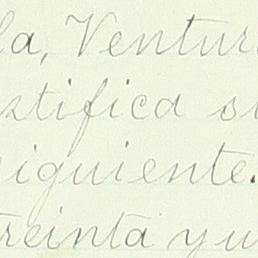 la, Ventura
stifica su
siguiente.
treinta yu